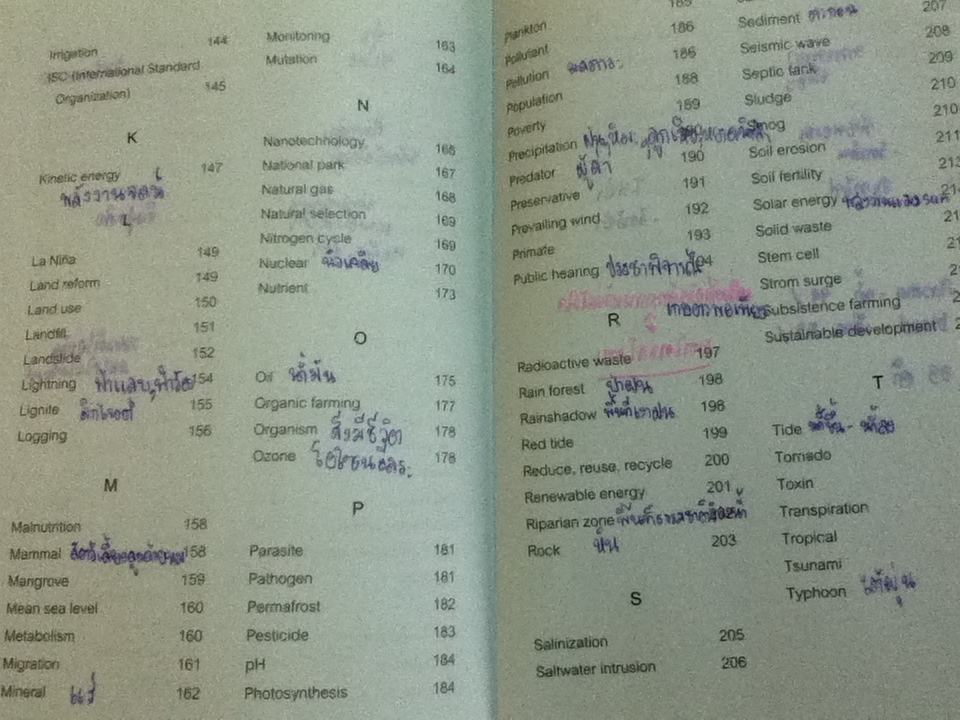 Irrigation 144
ISC (International Standard
Organization) 145
K
Kinetic energy 147
พลังงานจลน์
L
La Niña 149
Land reform 149
Land use 150
Landfill 151
Landslide 152
Lightning ฟ้าแลบ, 154
Lignite ลิกไนต์ 155
Logging 156
M
Malnutrition 158
Mammal สัตว์เลี้ยงลูกด้วยนม 158
Mangrove 159
Mean sea level 160
Metabolism 160
Migration 161
Mineral แร่ 162
Monitoring 163
Mutation 164
N
Nanotechnology 165
National park 167
Natural gas 168
Natural selection 169
Nitrogen cycle 169
Nuclear นิวเคลีย 170
Nutrient 173
O
Oil น้ำมัน 175
Organic farming 177
Organism สิ่งมีชีวิต 178
Ozone 178
P
Parasite 181
Pathogen 181
Permafrost 182
Pesticide 183
pH 184
Photosynthesis 184
Plankton 185
Pollutant 186
Pollution มลภาวะ 186
Population 188
Poverty 189
Precipitation
Predator ผู้ล่า 190
Preservative 191
Prevailing wind 192
Primate 193
Public hearing ประชาพิจารณ์
R
Radioactive waste 197
Rain forest ป่าฝน 198
Rainshadow พื้นที่เงาฝน 198
Red tide 199
Reduce, reuse, recycle 200
Renewable energy 201
Riparian zone
Rock หิน 203
S
Salinization 205
Saltwater intrusion 206
Sediment ตะกอน 207
Seismic wave 208
Septic tank 209
Sludge 210
Smog 210
Soil erosion 211
Soil fertility
Solar energy
Solid waste
Stem cell
Strom surge
Subsistence farming
Sustainable development
T
Tide น้ำขึ้น - น้ำลง
Tornado
Toxin
Transpiration
Tropical
Tsunami
Typhoon ไต้ฝุ่น